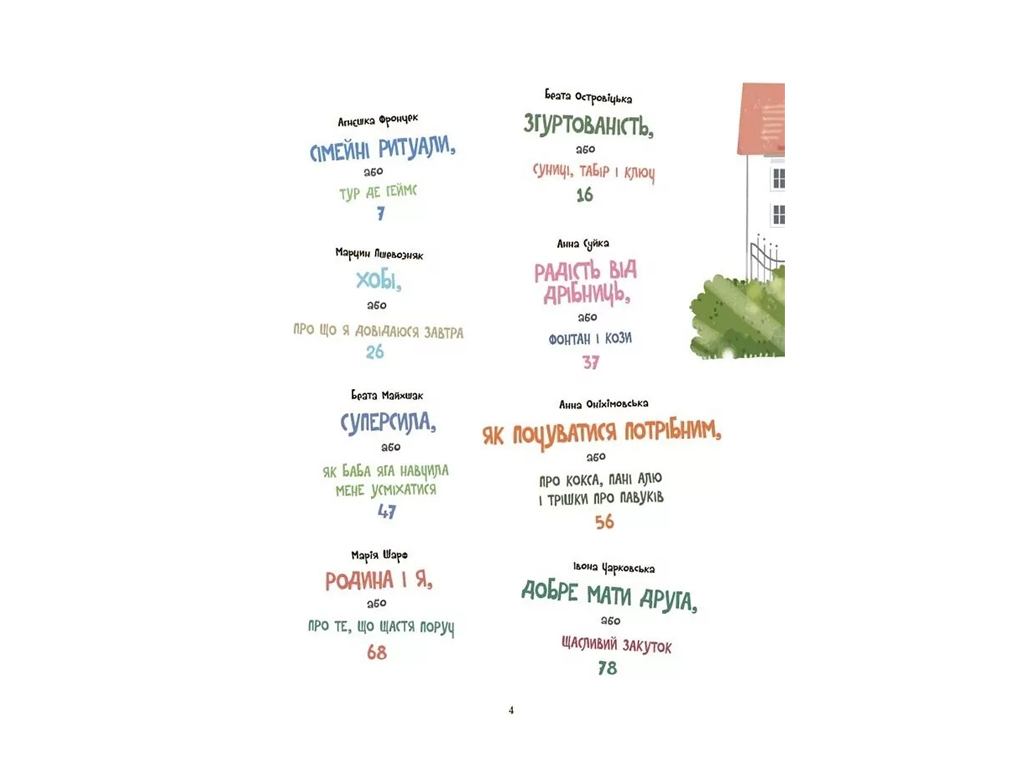 Агнєшка Фрончек
СІМЕЙНІ РИТУАЛИ,
або
ТУР ДЕ ГЕЙМС
7
Беата Островіцька
ЗГУРТОВАНІСТЬ,
або
СУНИЦІ, ТАБІР І КЛЮЧ
16
Марцин Пшевозняк
ХОБІ,
або
ПРО ЩО Я ДОВІДАЮСЯ ЗАВТРА
26
Анна Суйка
РАДІСТЬ ВІД
ДРІБНИЦЬ,
або
ФОНТАН І КОЗИ
37
Беата Майхшак
СУПЕРСИЛА,
або
ЯК БАБА ЯГА НАВЧИЛА
МЕНЕ УСМІХАТИСЯ
47
Анна Оніхімовська
ЯК ПОЧУВАТИСЯ ПОТРІБНИМ,
або
ПРО КОКСА, ПАНІ АЛЮ
І ТРІШКИ ПРО ПАВУКІВ
56
Марія Шарф
РОДИНА І Я,
або
ПРО ТЕ, ЩО ЩАСТЯ ПОРУЧ
68
Івона Чарковська
ДОБРЕ МАТИ ДРУГА,
або
ЩАСЛИВИЙ ЗАКУТОК
78
4